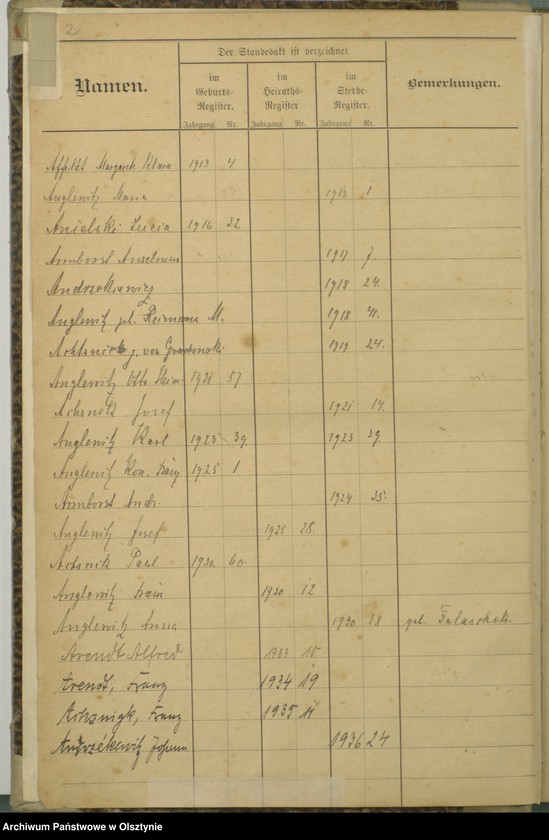 2
Der Standesakt ist verzeichnet
Namen.
im Geburts-Register.
im Heiraths-Register
im Sterbe-Register.
Bemerkungen.
Jahrgang Nr. Jahrgang Nr. Jahrgang Nr.
Affeldt Margarete Klara 1913 4
Anglewitz Maria 1913 1
Anielski Lucia 1916 32
Armborst Anselmus 1917 7.
Andrzekiewicz 1918 24.
Anglewitz geb. Reimann M. 1918 41.
g. von 1919 24.
Anglewitz Otto 1921 57
Achsnik Josef 1921 14.
Anglewitz Karl 1923 39. 1923 39.
Anglewitz Kon. Franz 1925 1
Armborst Andr. 1924 35.
Anglewitz Josef 1925 28.
Achsnik Paul 1930 60.
Anglewitz Franz 1930 12
Anglewitz Anna 1930 18 geb. Falaschek.
Arendt Alfred 1933 15
Arendt, Franz 1934 19
Achsnigk, Franz 1935 11
Andrzékewitz Johann 1936 24
Archiwum Państwowe w Olsztynie